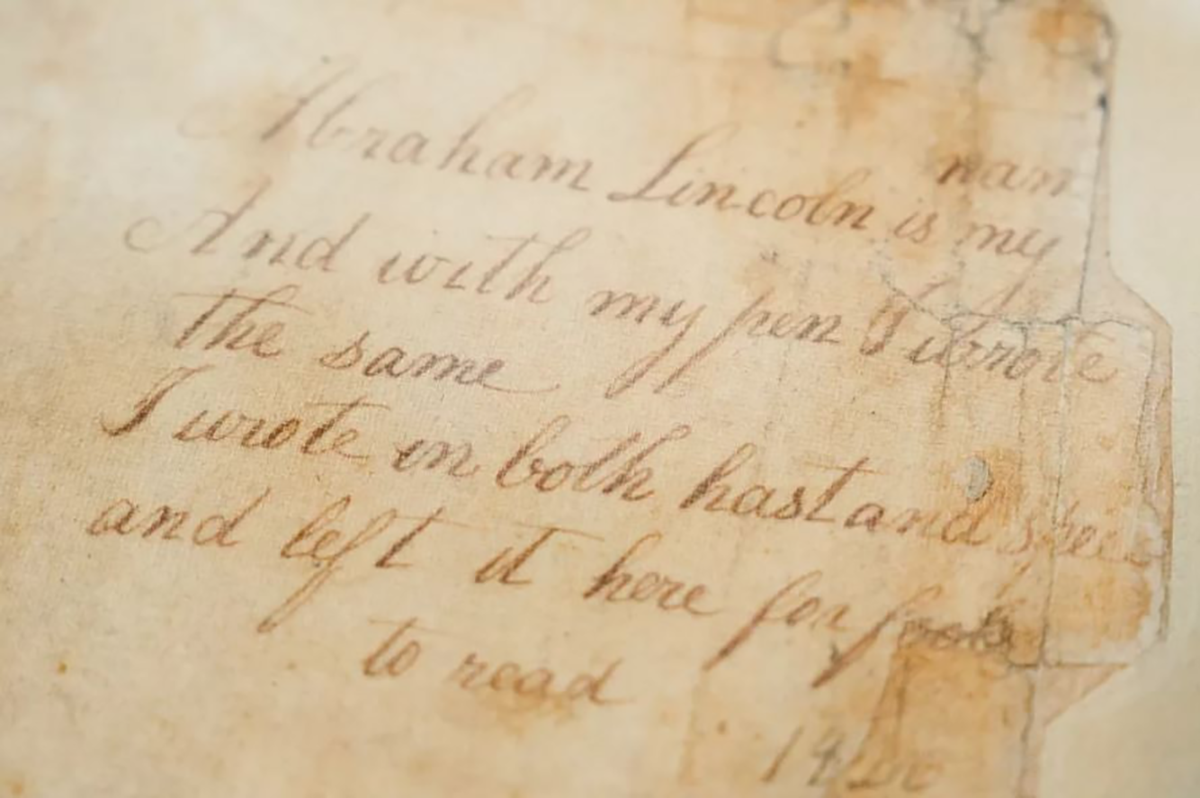 Abraham Lincoln is my
nam
And with my pen I wrote
the same
I wrote in both hast and spee
and left it here for fools
to read